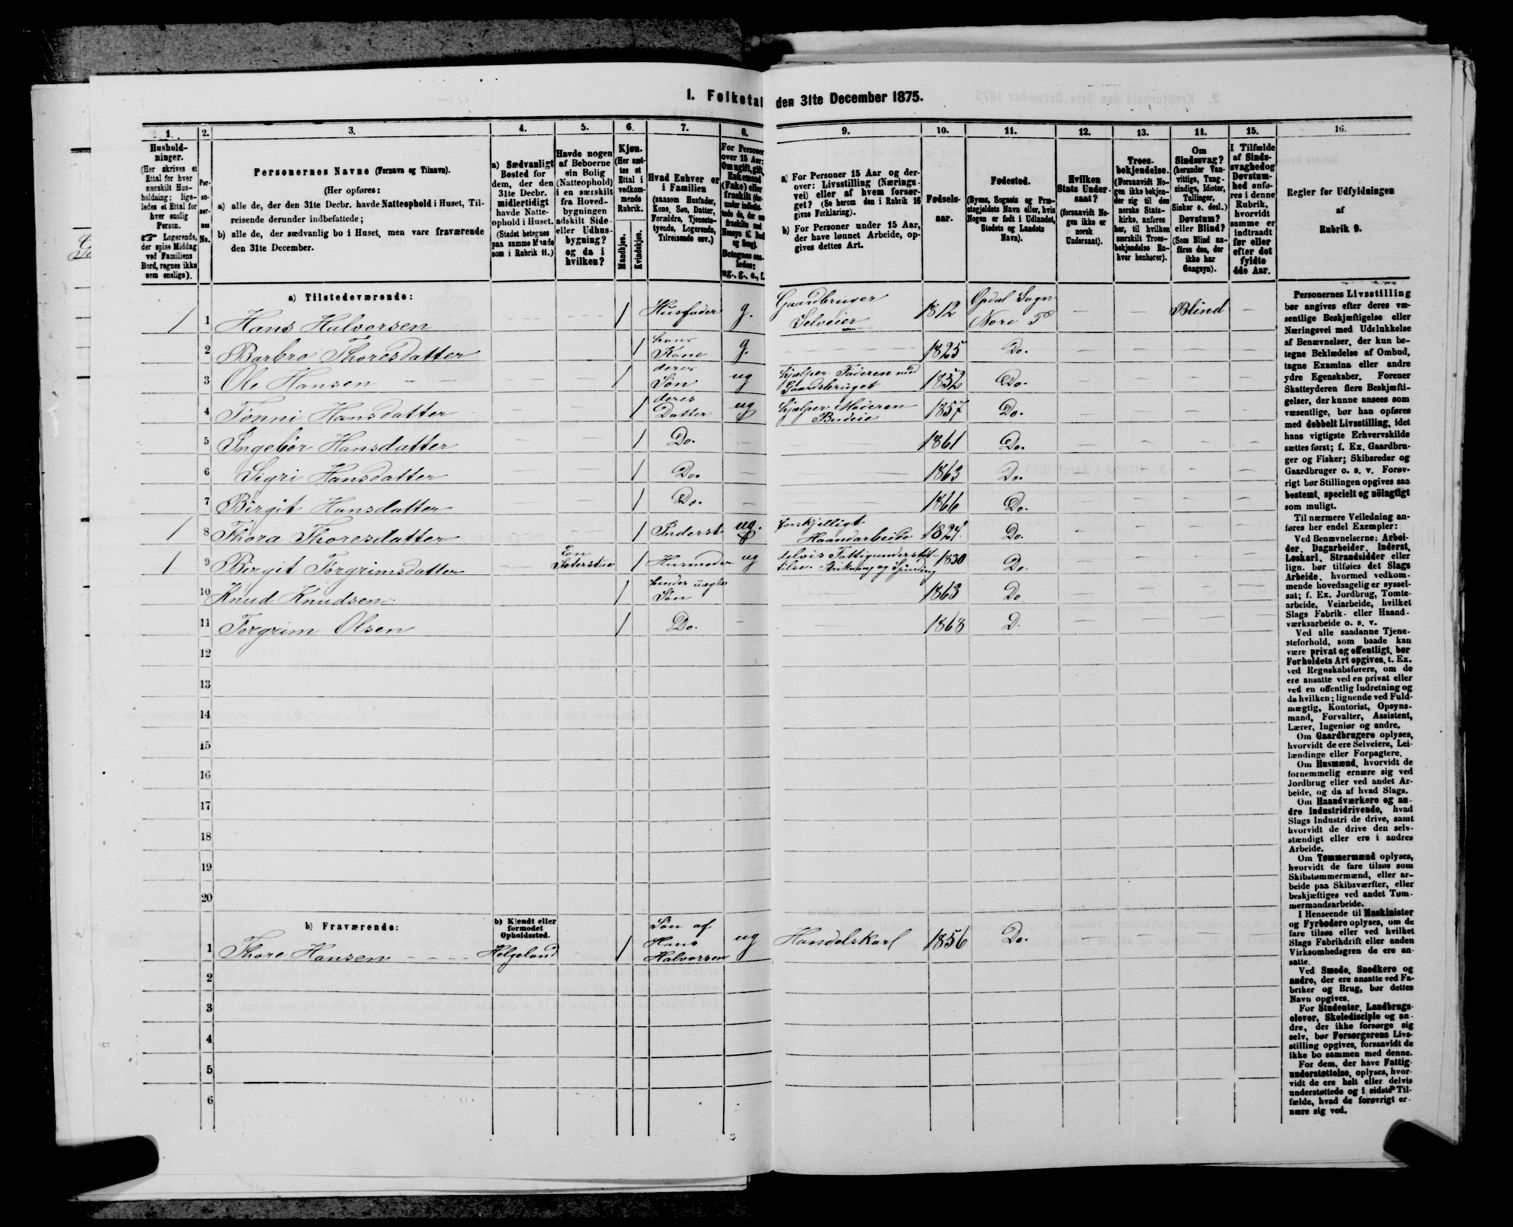 I. Folketal den 31te December 1875.
1. 2. 3. 4. 5. 6. 7. 8. 9. 10. 11. 12. 13. 14. 15. 16.
Hushold-
ninger.
(Her skrives et
Ettal for hver
særskilt Hus-
holdning; lige-
ledes et Ettal for
hver enslig
Person.
☞ Logerende,
der spise Middag
ved Familiens
Bord, regnes ikke
som enslige).
Per-
so-
ner-
nes
No.
Personernes Navne (Fornavn og Tilnavn).
(Her opføres:
a) alle de, der den 31te Decbr. havde Natteophold i Huset, Til-
reisende derunder indbefattede;
b) alle de, der sædvanlig bo i Huset, men vare fraværende
den 31te December.
a) Sædvanligt
Bosted for
dem, der den
31te Decbr.
midlertidigt
havde Natte-
ophold i Huset.
(Stedet betegnes
paa samme Maade
som i Rubrik 11.)
Havde nogen
af Beboerne
sin Bolig
(Natteophold)
i en særskilt
fra Hoved-
bygningen
adskilt Side-
eller Udhus-
bygning?
og da i
hvilken?
Kjøn.
(Her sæt-
tes et
Ettal i
vedkom-
mende
Rubrik.
Mandkjøn.
Kvindekjøn.
Hvad Enhver er
i Familien
(saasom Husfader,
Kone, Søn, Datter,
Forældre, Tjeneste-
tyende, Logerende,
Tilreisende osv.)
For Personer
over 15 Aar:
Om ugift, gift,
Enkemand
(Enke) eller
fraskilt
Betegnes saa-
ledes:
ug., g., e., f.
a) For Personer 15 Aar og der-
over: Livsstilling (Nærings-
vei) eller af hvem forsør-
get? (Se herom den i Rubrik 16
givne Forklaring).
b) For Personer under 15 Aar,
der have lønnet Arbeide, op-
gives dettes Art.
Fødsels-
aar.
Fødested.
(Byens, Sognets og Præ-
stegjeldets Navn eller, hvis
Nogen er født i Udlandet,
Stedets og Landets
Navn).
Hvilken
Stats Under-
saat?
(forsaavidt No-
gen ikke er
norsk
Undersaat).
Troes-
bekjendelse.
(Forsaavidt No-
gen ikke bekjen-
der sig til den
norske Stats-
kirke, anføres
her, til hvilken
særskilt Troes-
bekjendelse En-
hver henhører).
Om
Sindssvag?
(herunder Van-
vittige, Tung-
sindige, Idioter,
Tullinger,
Sinker o. desl.)
Døvstum?
eller Blind?
(Som Blind an-
føres den, der
ikke har
Gangsyn).
I Tilfælde
af Sinds-
svaghed og
Døvstum-
hed anfø-
res i denne
Rubrik,
hvorvidt
samme er
indtraadt
før eller
efter det
fyldte
4de Aar.
Regler for Udfyldningen
af
Rubrik 9.
a) Tilstedeværende:
1 1 Hans Halvorsen — — 1 Husfader g. Gaardbruger Selveier 1812 Opdal Sogn Nore P — — Blind —
2 Barbro Thoresdatter — — 1 hans Kone g. — 1825 Do. — — — —
3 Ole Hansen — — 1 deres Søn ug hjælper Faderen med Gaardsbruget 1852 Do. — — — —
4 Tønni Hansdatter — — 1 deres Datter ug hjelper Moderen Budeie 1857 Do. — — — —
5 Ingebør Hansdatter — — 1 Do. — — 1861 Do. — — — —
6 Sigri Hansdatter — — 1 Do. — — 1863 Do. — — — —
7 Birgit Hansdatter — — 1 Do. — — 1866 Do. — — — —
1 8 Thora Thoresdatter — — 1 Inderst ug. forskjelligt Haandarbeide 1827 Do. — — — —
1 9 Birgit Torgrimsdatter — En 1 ug delvis Fattigunderstøt- telse. Strikning og Spinding 1830 Do. — — — —
10 Knud Knudsen — — 1 hendes uægte Søn — — 1863 Do — — — —
11 Torgrim Olsen — — 1 Do. — — 1868 D. — — — —
12
13
14
15
16
17
18
19
20
b) Fraværende:
b) Kjendt eller
formodet
Opholdssted.
1 Thore Hansen Helgeland — 1 Søn af Hans Halvorsen ug Handelskarl 1856 Do. — — — —
2
3
4
5
6
Personernes Livsstilling
bør angives efter deres væ-
sentlige Beskjæftigelse eller
Næringsvei med Udelukkelse
af Benævnelser, der kun be-
tegne Beklædelse af Ombud,
tagne Examina eller andre
ydre Egenskaber. Forener
Skatteyderen flere Beskjæfti-
gelser, der kunne ansees som
væsentlige, bør han opføres
med dobbelt Livsstilling, idet
hans vigtigste Erhvervskilde
sættes først; f. Ex. Gaardbru-
ger og Fisker; Skibsreder og
Gaardbruger o. s. v. Forøv-
rigt bør Stillingen opgives saa
bestemt, specielt og nøiagtigt
som muligt.
Til nærmere Veiledning an-
føres her endel Exempler:
Ved Benævnelserne: Arbei-
der, Dagarbeider, Inderst,
Løskarl, Strandsidder eller
lign. bør tilføies det Slags
Arbeide, hvormed vedkom-
mende hovedsagelig er syssel-
sat; f. Ex. Jordbrug, Tomte-
arbeide, Veiarbeide, hvilket
Slags Fabrik- eller Haand-
værksarbeide o. s. v.
Ved alle saadanne Tjene-
steforhold, som baade kan
være privat og offentligt, bør
Forholdets Art opgives, t. Ex.
ved Regnskabsførere, om de
ere ansatte ved en privat eller
ved en offentlig Indretning og
da hvilken; lignende ved Fuld-
mægtig, Kontorist, Opsyns-
mand, Forvalter, Assistent,
Lærer, Ingeniør og andre.
Om Gaardbrugere oplyses,
hvorvidt de ere Selveiere, Lei-
lændinge eller Forpagtere.
Om Husmænd, hvorvidt de
fornemmelig ernære sig ved
Jordbrug eller ved andet Ar-
beide, og da af hvad Slags.
Om Haandværkere og an-
dre industridrivende, hvad
Slags Industri de drive, samt
hvorvidt de drive den selv-
stændigt eller ere i andres
Arbeide.
Om Tømmermænd oplyses,
hvorvidt de fare tilsøs som
Skibstømmermænd, eller ar-
beide paa Skibsværfter, eller
beskjæftiges ved andet Tøm-
mermandsarbeide.
I Henseende til Maskinister
og Fyrbødere oplyses, om de
fare tilsøs eller ved hvilket
Slags Fabrikdrift eller anden
Virksomhedsgren de ere an-
satte.
Ved Smede, Snedkere og
andre, der ere ansatte ved Fa-
briker og Brug, bør dettes
Navn opgives.
For Studenter, Landbrugs-
elever, Skoledisciple og an-
dre, der ikke forsørge sig
selv, bør Forsørgerens Livs-
stilling opgives, forsaavidt de
ikke bo sammen med denne.
For dem, der have Fattig-
understøttelse, oplyses, hvor-
vidt de ere helt eller delvis
understøttede og i sidste Til-
fælde, hvad de forøvrigt er-
nære sig ved.